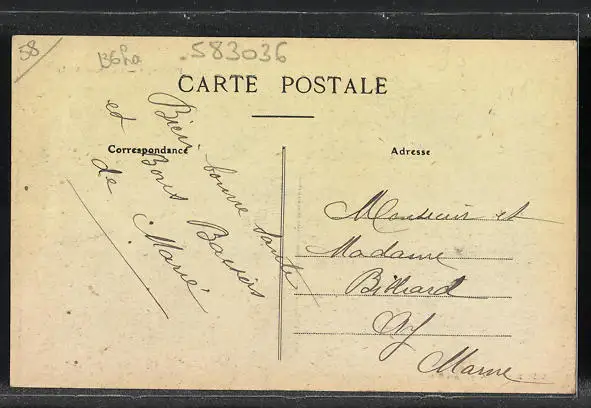 58
B6ha
583036
CARTE POSTALE
Correspondance
Adresse
Bien bonne Santé
et Bons Baisers
de Marie
Monsieur et
Madame
Billiard
Ay
Marne